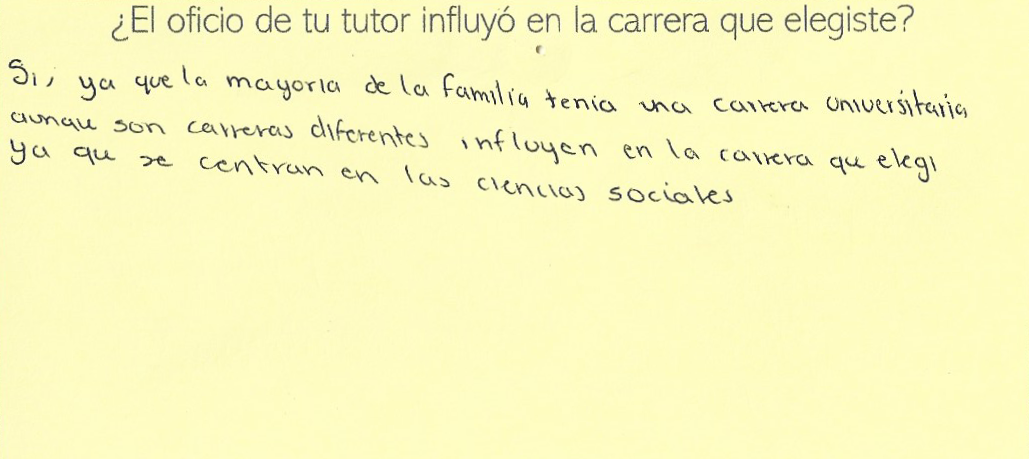 ¿El oficio de tu tutor influyó en la carrera que elegiste?
Si, ya que la mayoria de la familia tenia una carrera universitaria
aunqu son carreras diferentes influyen en la carrera qu elegi
ya qu se centran en las ciencias sociales